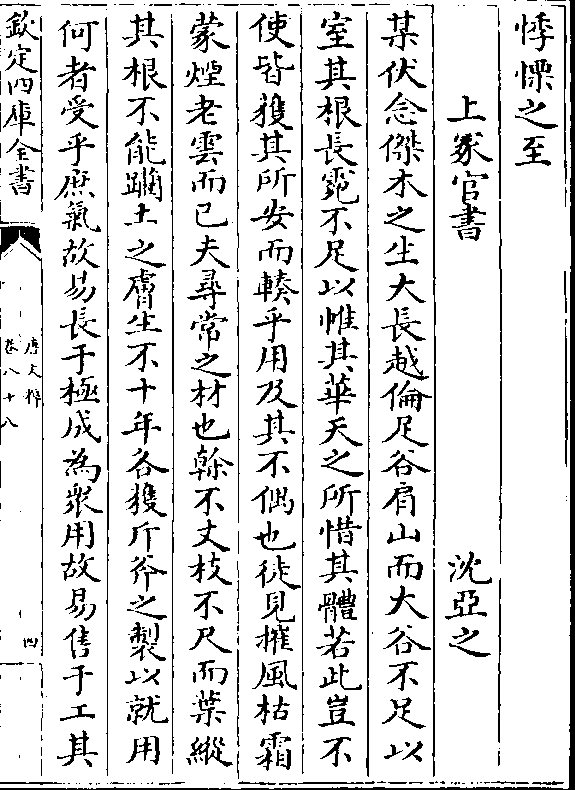 悸慄之至
上冢官書　沈亞之
某伏念傑木之生大長越倫足谷肩山而大谷不足以
室其根長霓不足以帷其華天之所惜其體若此豈不
使皆獲其所安而輳乎用及其不偶也徒見摧風枯霜
蒙煙老雲而已夫尋常之材也榦不丈枝不尺而葉縱
其根不能躪土之膚生不十年各獲斤斧之製以就用
何者受乎庶氣故易長于極成為衆用故易售于工其
欽定四庫全書
唐文粹
卷八十八
四